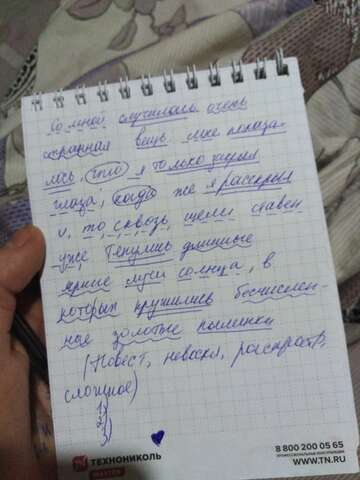 Со мной случилась очень
странная вещь мне показа-
лось, что я только закрыл
глаза, когда же я раскрыл
и, то сквозь щели ставен
уже тянулись длинные
яркие лучи солнца, в
которых кружились бесчислен-
ные золотые пылинки
(Повест, невоскл, распростр,
сложное)
1)
2)
3)
ТЕХНОНИКОЛЬ
МАСТЕР
8 800 200 05 65
ПРОФЕССИОНАЛЬНЫЕ КОНСУЛЬТАЦИИ
WWW.TN.RU